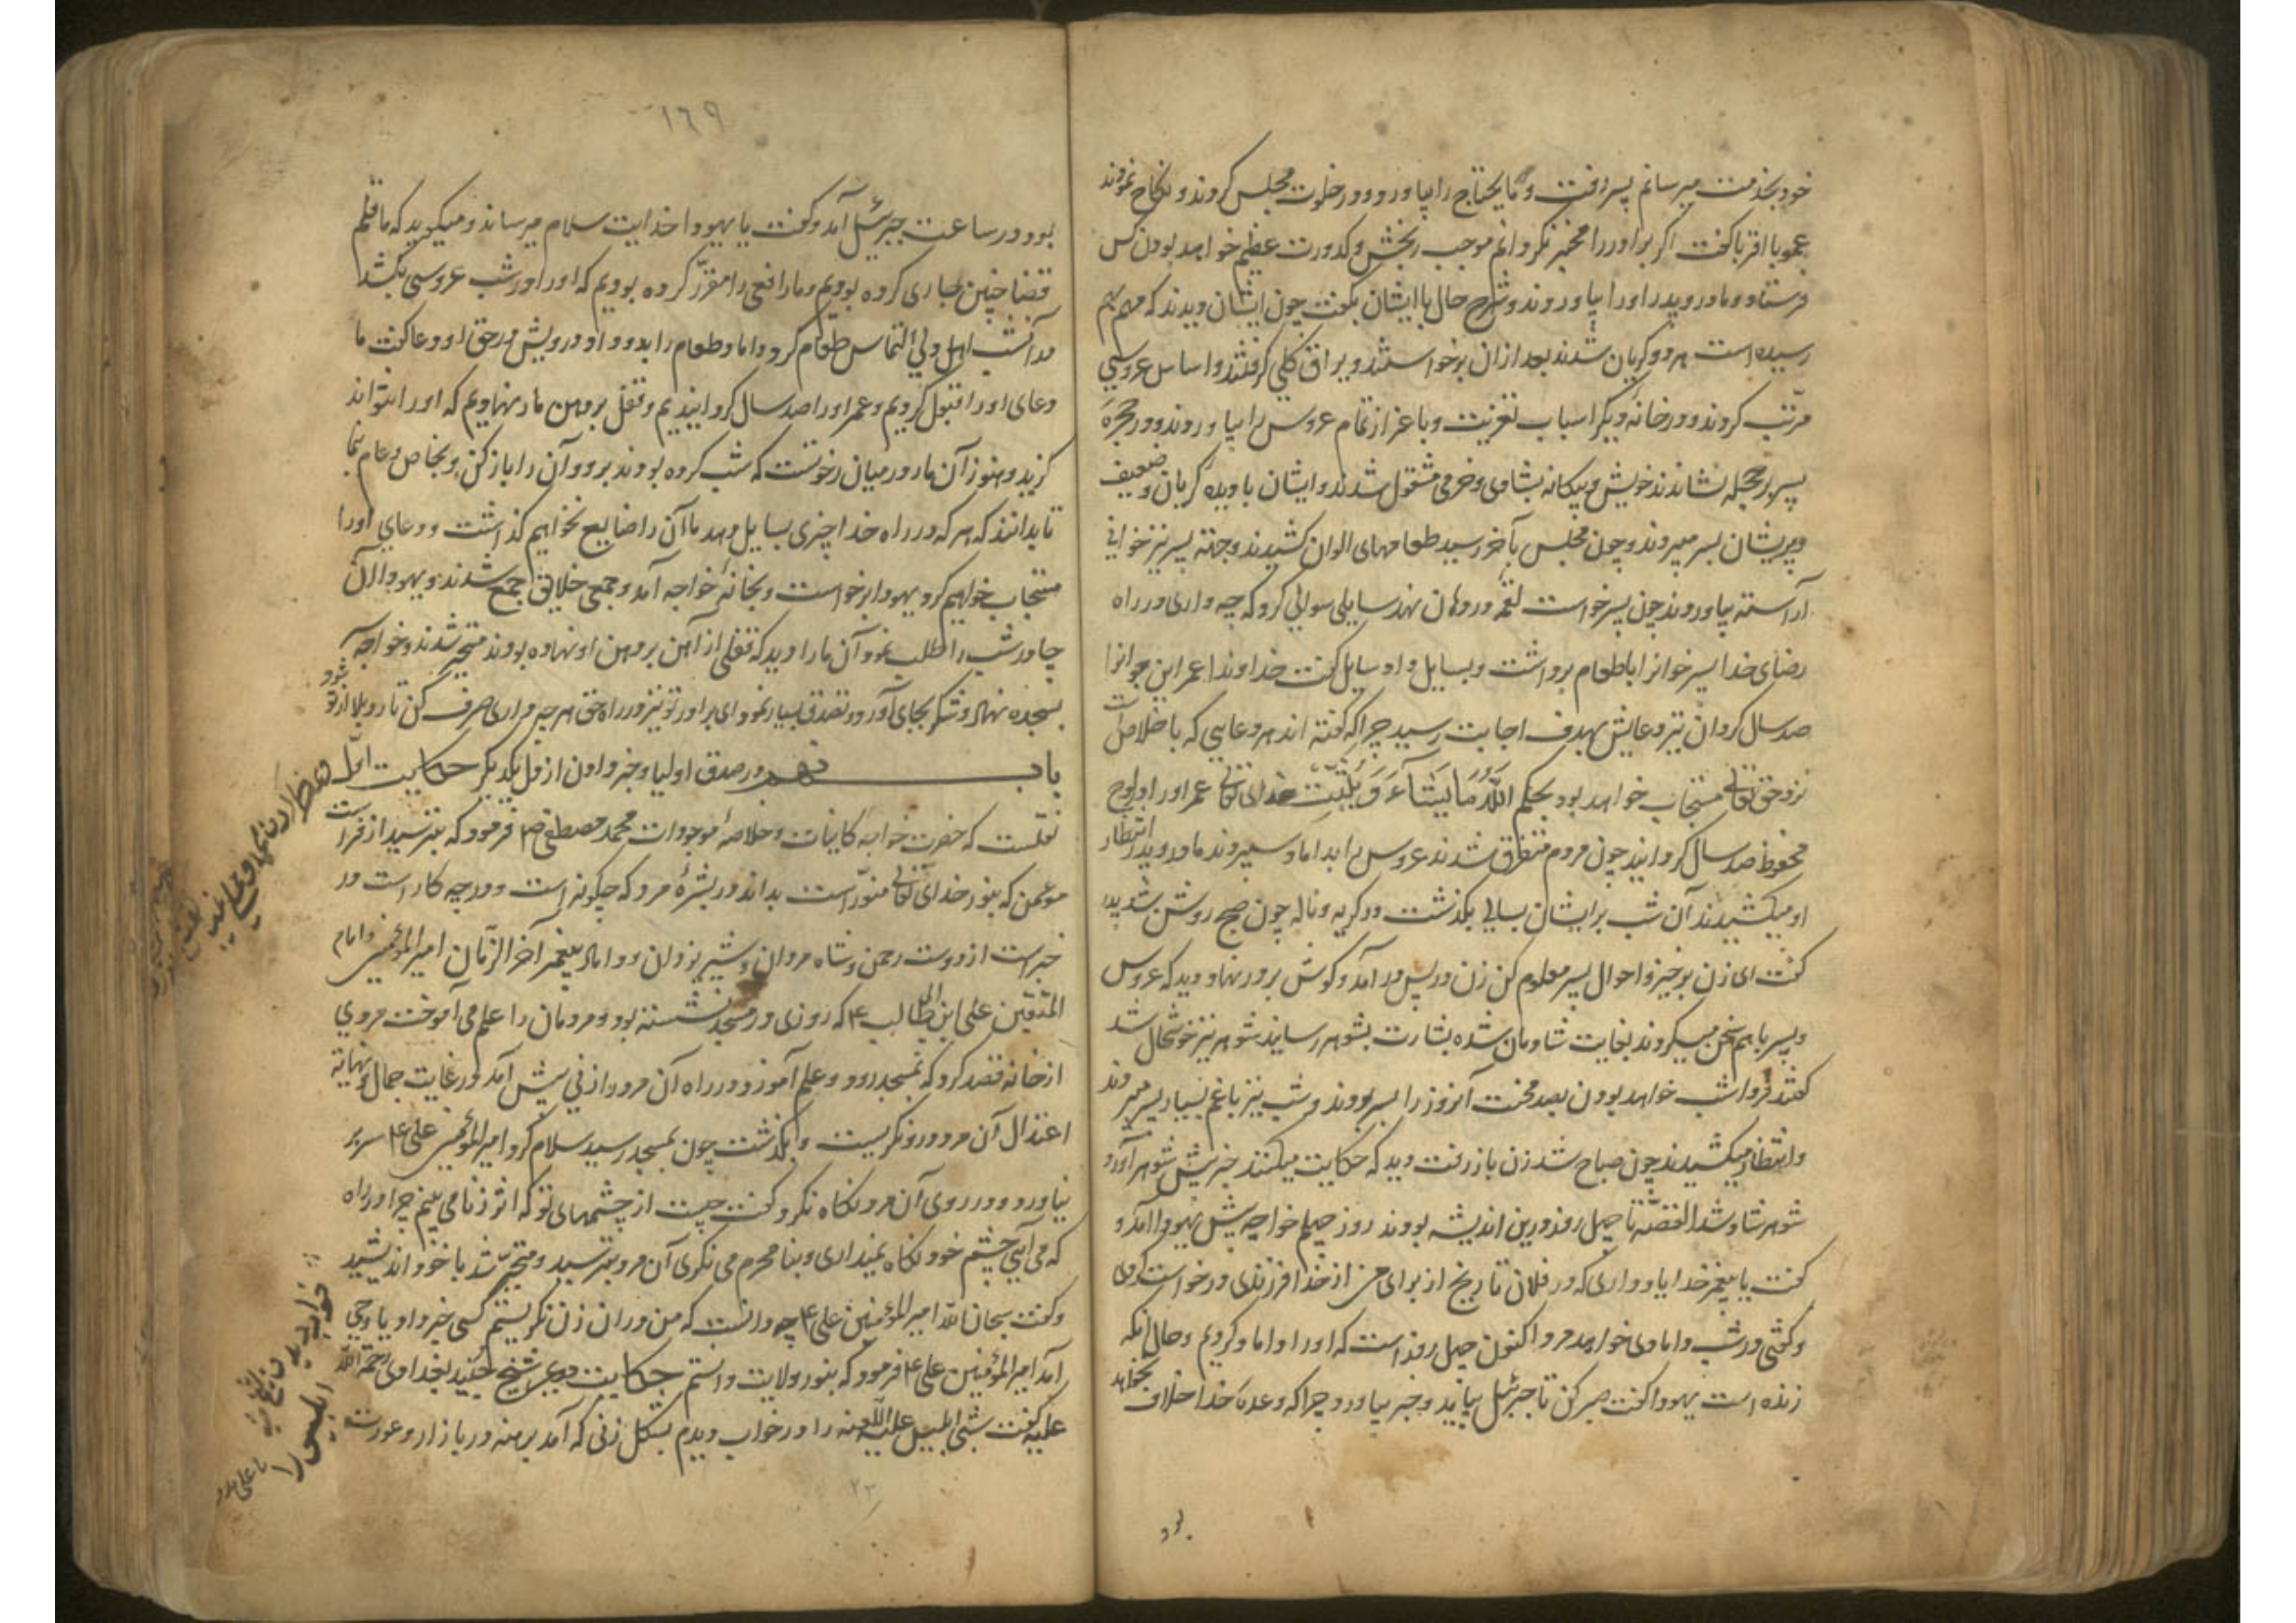 خود بخدمت میرسانم پسر رفت و مایحتاج را بیاورد و در خلوت مجلس کردند و نکاح نمودند
عمو با اقربا گفت اگر برادر را مخبر نگردانم موجب رنجش و کدورت عظیم خواهد بودن کس
فرستاد و مادر و پدر او را بیاوردند و شرح حال با ایشان بگفت چون ایشان دیدند که مهم بهم
رسیده است هر دو گریان شدند بعد از آن برخواستند و یراق کلی گرفتند و اساس عروسی
مرتب کردند و در خانه دیگر اسباب تعزیت و باعزاز تمام عروس را بیاوردند و در حجره
پسر بر حجله نشاندند خویش و بیکانه بشادی و خرمی مشغول شدند و ایشان با دیده گریان و ضعیف
و پریشان بسر میبردند و چون مجلس بآخر رسید طعامهای الوان کشیدند و جهته پسر نیز خوانی
آراسته بیاوردند چون پسر خواست لقمه در دهان نهد سایلی سوالی کرد که چه داری در راه
رضای خدا پسر خوانرا با طعام برداشت و بسایل داد سایل گفت خداوندا عمر این جوانرا
صد سال گردان تیر دعایش بهدف اجابت رسید چرا که گفته اند هر دعایی که با خلاص است
نزد حق تعالی مستجاب خواهد بود بحکم الله ما یشاء و یثبت خدای تعالی عمر او را در لوح
محفوظ صد سال گردانید چون مردم متفرق شدند عروس را بداماد سپردند مادر و پدر انتظار
او میکشیدند آن شب بر ایشان بسالی بگذشت در گریه و ناله چون صبح روشن شد پدر
گفت ای زن برخیز و احوال پسر معلوم کن زن در پس در آمد و گوش بر در نهاد دید که عروس
و پسر با هم سخن میکردند بغایت شادمان شده بشارت بشوهر رسانید شوهر نیز خوشحال شد
گفتند فردا شب خواهد بودن بصد محنت آنروز را بسر بودند و شب نیز با غم بسیار بسر میبردند
و انتظار میکشیدند چون صباح شد زن باز رفت دید که حکایت میکنند خبر پیش شوهر آورد
شوهر شاد شد القصّه تا چهل روز در این اندیشه بودند روز چهلم خواجه پیش یهودا آمد و
گفت یا پیغمبر خدا یاد داری که در فلان تاریخ از برای من از خدا فرزندی درخواست کردی
و گفتی در شب دامادی خواهد مرد اکنون چهل روز است که او را داماد کردیم و حال آنکه
زنده است یهودا گفت صبر کن تا جبرئیل بیاید و خبر بیاورد چرا که وعده خدا خلاف نخواهد
بود
١٦٩
بود در ساعت جبرئیل آمد و گفت یا یهودا خدایت سلام میرساند و میگوید که ما قلم
قضا چنین جاری کرده بودیم و مار افعی را مقرّر کرده بودیم که او را در شب عروسی بکشد
در آن شب اهل دلی التماس طعام کرد و داماد طعام را بدو داد و درویش در حق او دعا گفت ما
دعای او را قبول کردیم و عمر او را صد سال گردانیدیم و قفل بر دهن مار نهادیم که او را نتواند
گزید و هنوز آن مار در میان رخوتست که شب کرده بودند برو و آن را باز کن و بخاص و عام نما
تا بدانند که هر که در راه خدا چیزی بسایل دهد ما آن را ضایع نخواهیم گذاشت و دعای او را
مستجاب خواهیم کرد یهودا برخواست و بخانه خواجه آمد و جمیع خلایق جمع شدند و یهودا آن
چادر شب را طلب نمود آن مار را دید که قفلی از آهن بر دهن او نهاده بودند متحیر شدند و خواجه
بسجده نهاد و شکر بجای آورد و تصدق بسیار نمود ای برادر تو نیز در راه حق هر چه داری صرف کن تا رد بلا از تو شود
باب نهم در صدق اولیا و خبر دادن از دل یکدیگر حکایت اوّل
نقلست که حضرت خواجه کاینات و خلاصه موجودات محمد مصطفی ص فرمود که بترسید از فراست
مؤمن که بنور خدای تعالی منوّر است بداند در بشرهٔ مرد که چگونه است و در چه کار است در
خبر است از دوست رحمن و شاه مردان و شیر یزدان و داماد پیغمبر آخر الزّمان امیر المؤمنین و امام
المتقین علی ابن ابی طالب ع که روزی در مسجد نشسته بود و مردمان را علم می آموخت مردی
از خانه قصد کرد که بمسجد رود و علم آموزد در راه آن مرد را زنی پیش آمد در غایت جمال و نهایة
اعتدال آن مرد درو نگریست و بگذشت چون بمسجد رسید سلام کرد امیر المؤمنین علی ع سر بر
نیاورد و در روی آن مرد نگاه نکرد گفت چیست از چشمهای تو که اثر زنا می بینم چرا در راه
که می آیی چشم خود نگاه نمیداری و بنا محرم می نگری آن مرد بترسید و متحیر شد با خود اندیشید
و گفت سبحان الله امیر المؤمنین علی ع چه دانست که من در آن زن نگریستم کسی خبر داد یا وحی
آمد امیر المؤمنین علی ع فرمود که بنور ولایت دانستم حکایت دیگر شیخ جنید بغدادی رحمة الله
علیه گفت شبی ابلیس علیه اللعنه را در خواب دیدم بشکل زنی که آمد برهنه در بازار و عورت
٢٣
یا علی مدد